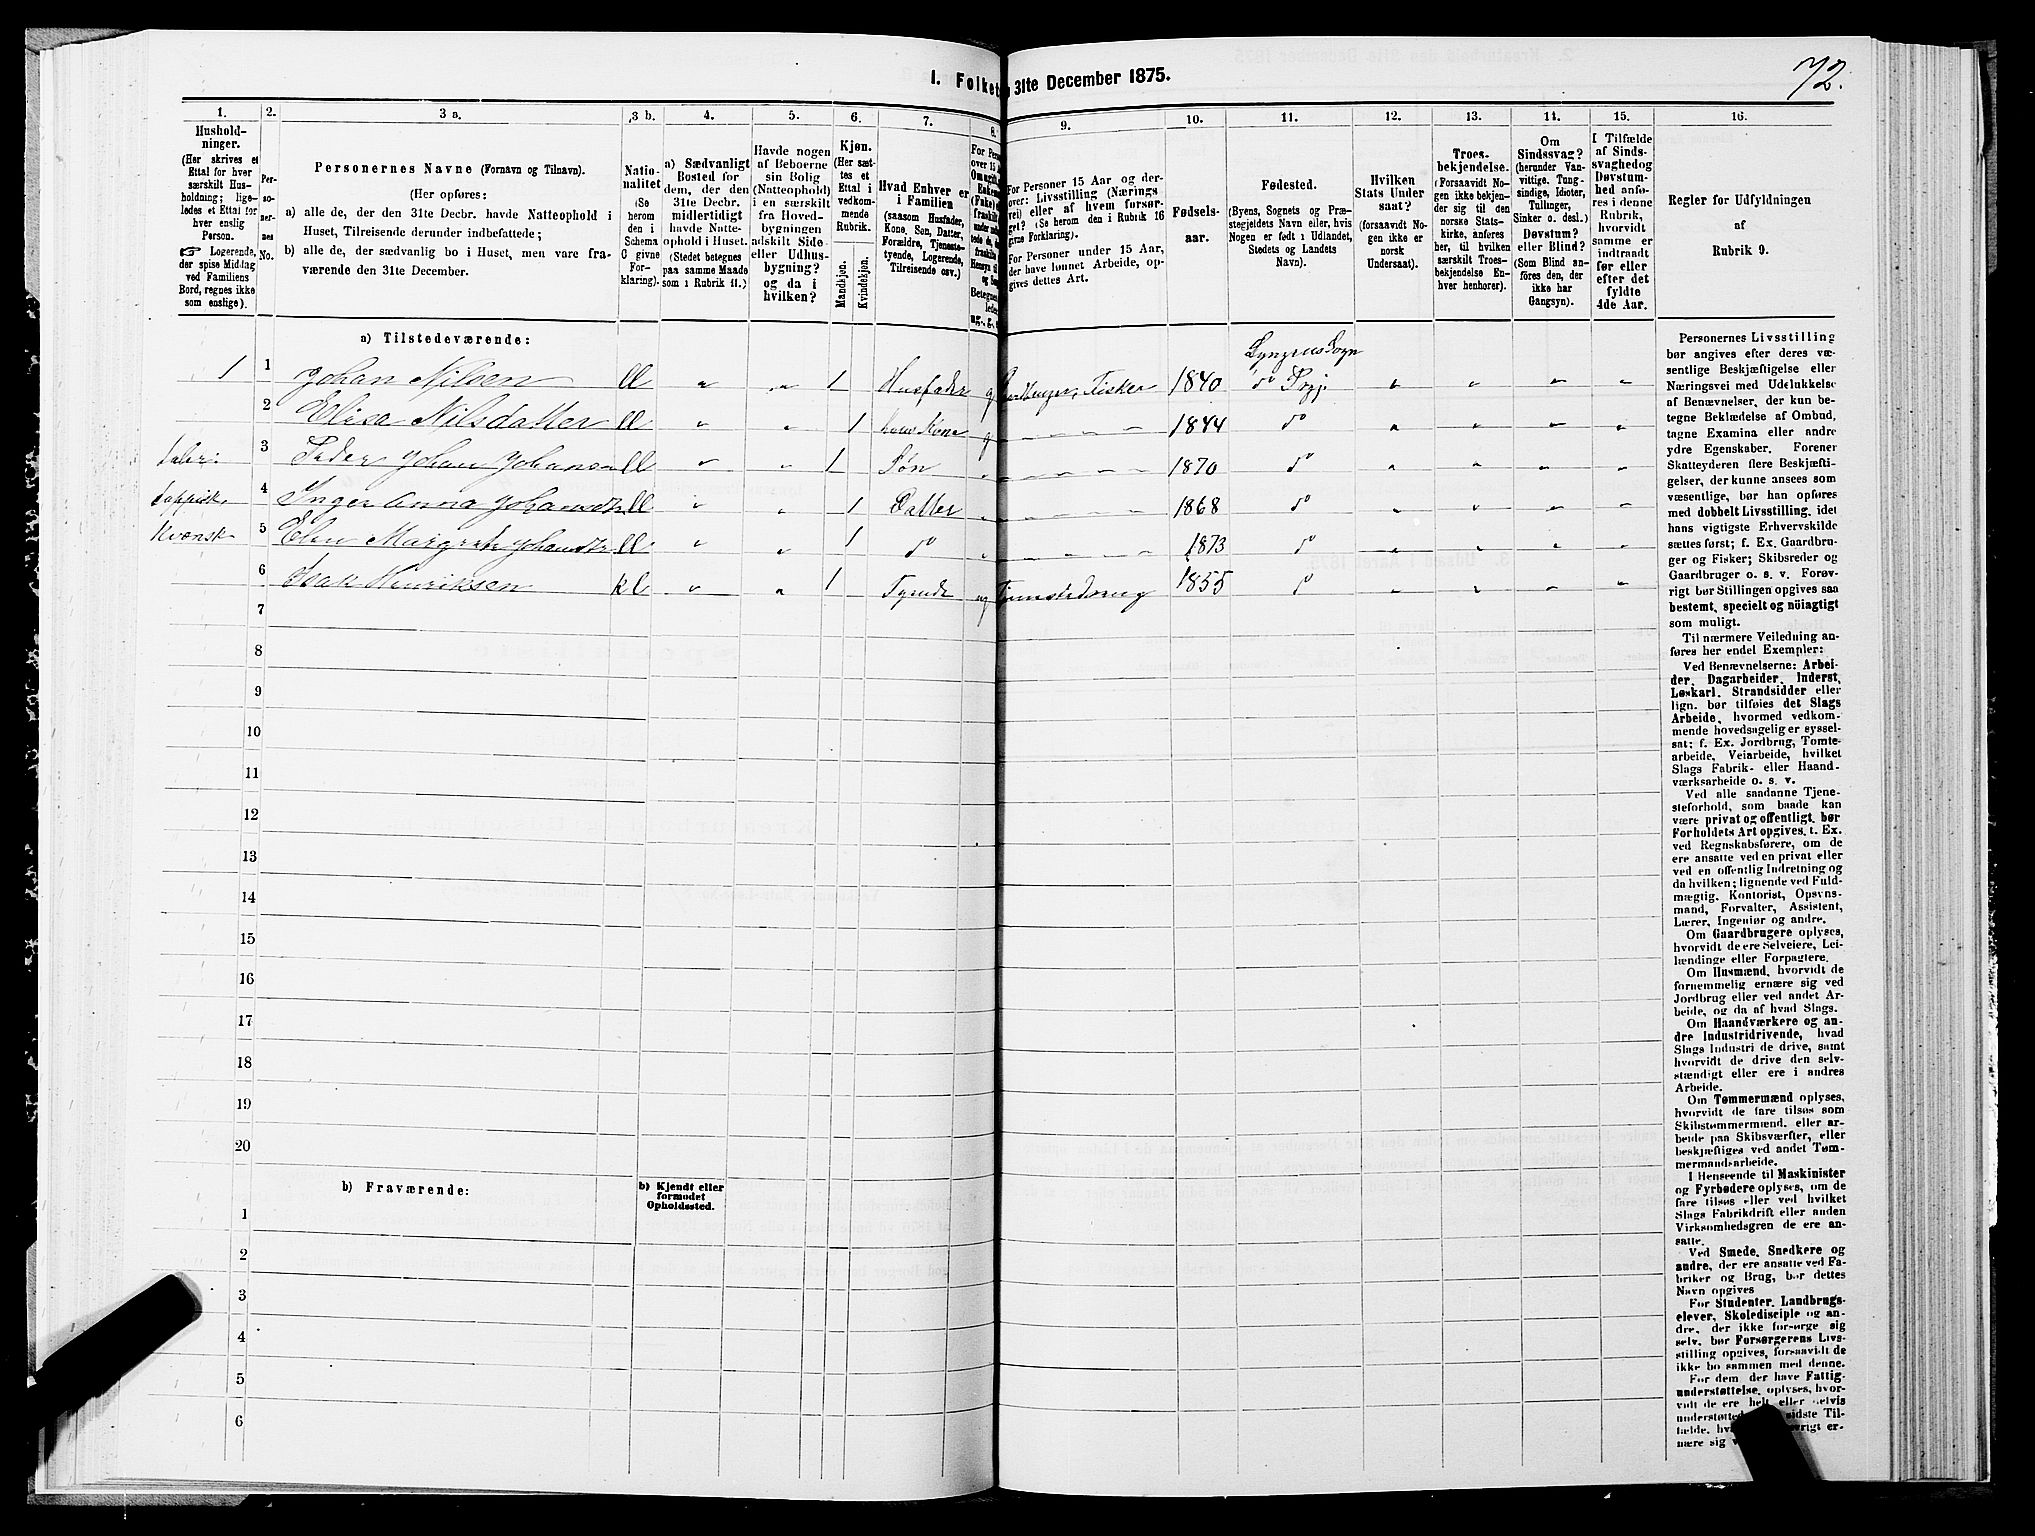 I. Folket 31te December 1875.
72.
1. 2. 3 a. 3 b. 4. 5. 6. 7. 8. 9. 10. 11. 12. 13. 14. 15. 16.
Hushold-
ninger.
(Her skrives et
Ettal for hver
særskilt Hus-
holdning; lige-
ledes et Ettal for
hver enslig
Person.
☞ Logerende,
der spise Middag
ved Familiens
Bord, regnes ikke
som enslige).
Per-
so-
ner-
nes
No.
Personernes Navne (Fornavn og Tilnavn).
(Her opføres:
a) alle de, der den 31te Decbr. havde Natteophold i
Huset, Tilreisende derunder indbefattede;
b) alle de, der sædvanlig bo i Huset, men vare fra-
værende den 31te December.
Natio-
nalitet
(Se
herom
den i
Schema
C givne
For-
klaring).
a) Sædvanligt
Bosted for
dem, der den
31te Decbr.
midlertidigt
havde Natte-
ophold i Huset.
(Stedet betegnes
paa samme Maade
som i Rubrik 11.)
Havde nogen
af Beboerne
sin Bolig
(Natteophold)
i en særskilt
fra Hoved-
bygningen
adskilt Side-
eller Udhus-
bygning?
og da i
hvilken?
Kjøn.
(Her sæt-
tes et
Ettal i
vedkom-
mende
Rubrik.
Mandkjøn.
Kvindekjøn.
Hvad Enhver er
i Familien
(saasom Husfader,
Kone, Søn, Datter,
Forældre, Tjeneste-
tyende, Logerende,
Tilreisende osv.)
For Personer 15 Aar og der-
over: Livsstilling (Nærings
vei) eller af hvem forsør-
get? (Se herom den i Rubrik 16
givne Forklaring).
For Personer under 15 Aar,
der have lønnet Arbeide, op-
gives dettes Art.
Fødsels-
aar.
Fødested.
(Byens, Sognets og Præ-
stegjeldets Navn eller, hvis
Nogen er født i Udlandet,
Stedets og Landets
Navn).
Hvilken
Stats Under
saat?
(forsaavidt No-
gen ikke er
norsk
Undersaat).
Troes-
bekjendelse.
(Forsaavidt No-
gen ikke bekjen-
der sig til den
norske Stats-
kirke, anføres
her, til hvilken
særskilt Troes-
bekjendelse En-
hver henhører).
Om
Sindssvag?
(herunder Van-
vittige, Tung-
sindige, Idioter,
Tullinger,
Sinker o. desl.)
Døvstum?
eller Blind?
(Som Blind an-
føres den, der
ikke har
Gangsyn).
I Tilfælde
af Sinds-
svaghed og
Døvstum-
hed anfø-
res i denne
Rubrik,
hvorvidt
samme er
indtraadt
før eller
efter det
fyldte
4de Aar.
Regler for Udfyldningen
af
Rubrik 9.
a) Tilstedeværende:
Lyngens Sogn
1 1 Johan Nilsen ll " " 1 Husfader g Fisker 1840 " " " "
2 Elisa Nilsdatter ll " " 1 hans Kone g 1844 d° " " " "
taler: 3 Peder Johan Johans ll " " 1 Søn 1870 d° " " " "
lappisk, 4 Inger Anna Johansdtr ll " " 1 Datter 1868 d° " " " "
Kvænsk 5 Elen Margrete Johansdtr ll " " 1 d° 1873 d° " " " "
6 Isak Henriksen kl " " 1 Tyende ug 1855 d° " " " "
7
8
9
10
11
12
13
14
15
16
17
18
19
20
b) Fraværende:
b) Kjendt eller
formodet
Opholdssted.
1
2
3
4
5
6
Personernes Livsstilling
bør angives efter deres væ-
sentlige Beskjæftigelse eller
Næringsvei med Udelukkelse
af Benævnelser, der kun be-
tegne Beklædelse af Ombud,
tagne Examina eller andre
ydre Egenskaber. Forener
Skatteyderen flere Beskjæfti-
gelser, der kunne ansees som
væsentlige, bør han opføres
med dobbelt Livsstilling, idet
hans vigtigste Erhvervskilde
sættes først; f. Ex. Gaardbru-
ger og Fisker; Skibsreder og
Gaardbruger o. s. v. Forøv-
rigt bør Stillingen opgives saa
bestemt, specielt og nöiagtigt
som muligt.
Til nærmere Veiledning an-
føres her endel Exempler:
Ved Benævnelserne: Arbei-
der, Dagarbeider, Inderst,
Løskarl, Strandsidder eller
lign. bør tilføies det Slags
Arbeide, hvormed vedkom-
mende hovedsagelig er syssel-
sat; f. Ex. Jordbrug, Tomte-
arbeide, Veiarbeide, hvilket
Slags Fabrik- eller Haand-
værksarbeide o. s. v.
Ved alle saadanne Tjene-
steforhold, som baade kan
være privat og offentligt, bør
Forholdets Art opgives, t. Ex.
ved Regnskabsførere, om de
ere ansatte ved en privat eller
ved en offentlig Indretning og
da hvilken; lignende ved Fuld-
mægtig, Kontorist, Opsyns-
mand, Forvalter, Assistent,
Lærer, Ingeniør og andre.
Om Gaardbrugere oplyses,
hvorvidt de ere Selveiere, Lei-
lændinge eller Forpagtere.
Om Husmænd, hvorvidt de
fornemmelig ernære sig ved
Jordbrug eller ved andet Ar-
beide, og da af hvad Slags.
Om Haandværkere og an-
dre Industridrivende, hvad
Slags Industri de drive, samt
hvorvidt de drive den selv-
stændigt eller ere i andres
Arbeide.
Om Tømmermænd oplyses,
hvorvidt de fare tilsøs som
Skibstømmermænd, eller ar-
beide paa Skibsværfter, eller
beskjæftiges ved andet Tøm-
mermandsarbeide.
I Henseende til Maskinister
og Fyrbødere oplyses, om de
fare tilsøs eller ved hvilket
Slags Fabrikdrift eller anden
Virksomhedsgren de ere an-
satte.
Ved Smede, Snedkere og
andre, der ere ansatte ved Fa-
briker og Brug, bør dettes
Navn opgives
For Studenter, Landbrugs-
elever, Skoledisciple og an-
dre, der ikke forsørge sig
selv, bør Forsørgerens Livs-
stilling opgives, forsaavidt de
ikke bo sammen med denne.
For dem, der have Fattig-
understøttelse, oplyses, hvor-
vidt de ere helt eller delvis
understøttede sidste Til-
fælde, rigt er-
nære sig